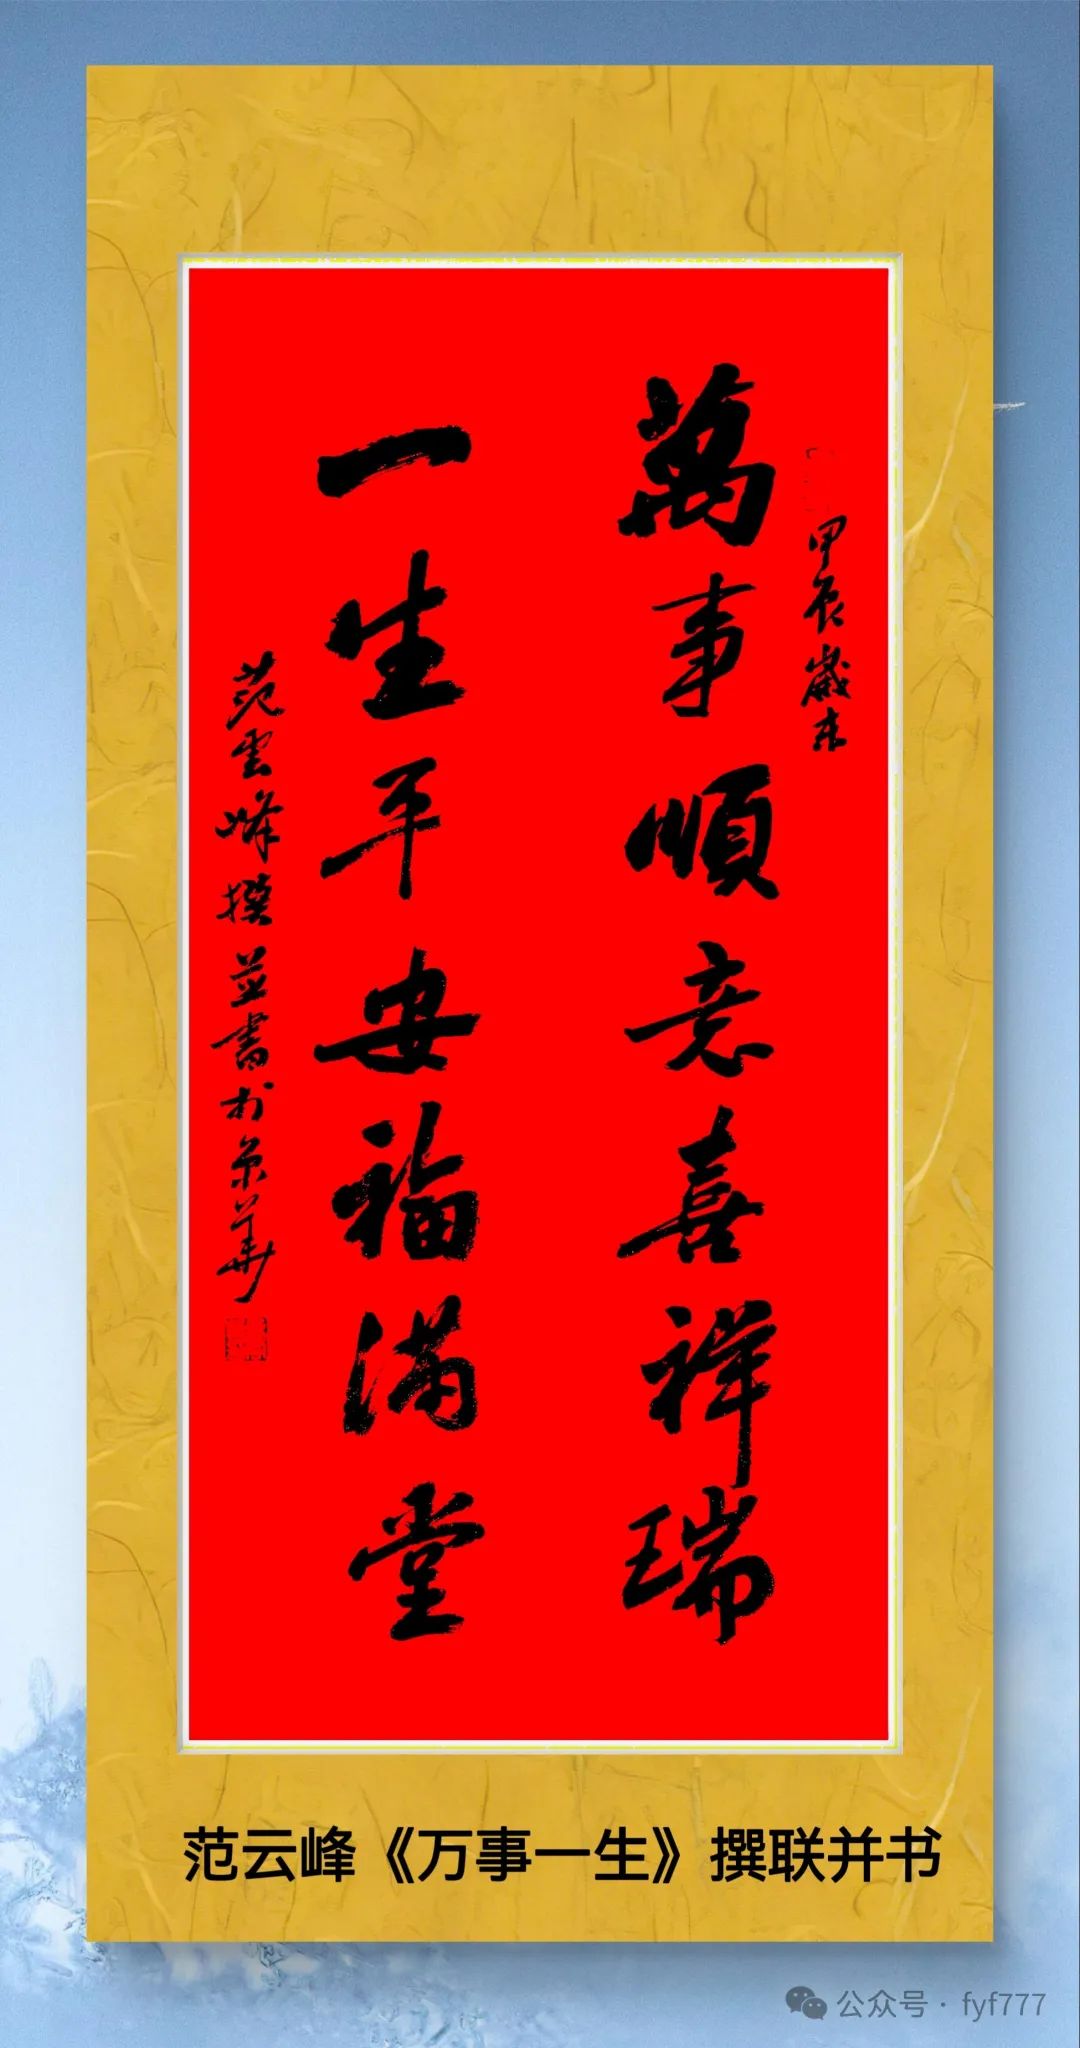 甲辰歲末
萬事順意喜祥瑞
一生平安福满堂
范雲峰撰並書於京華
范云峰《万事一生》撰联并书
公众号·fyf777